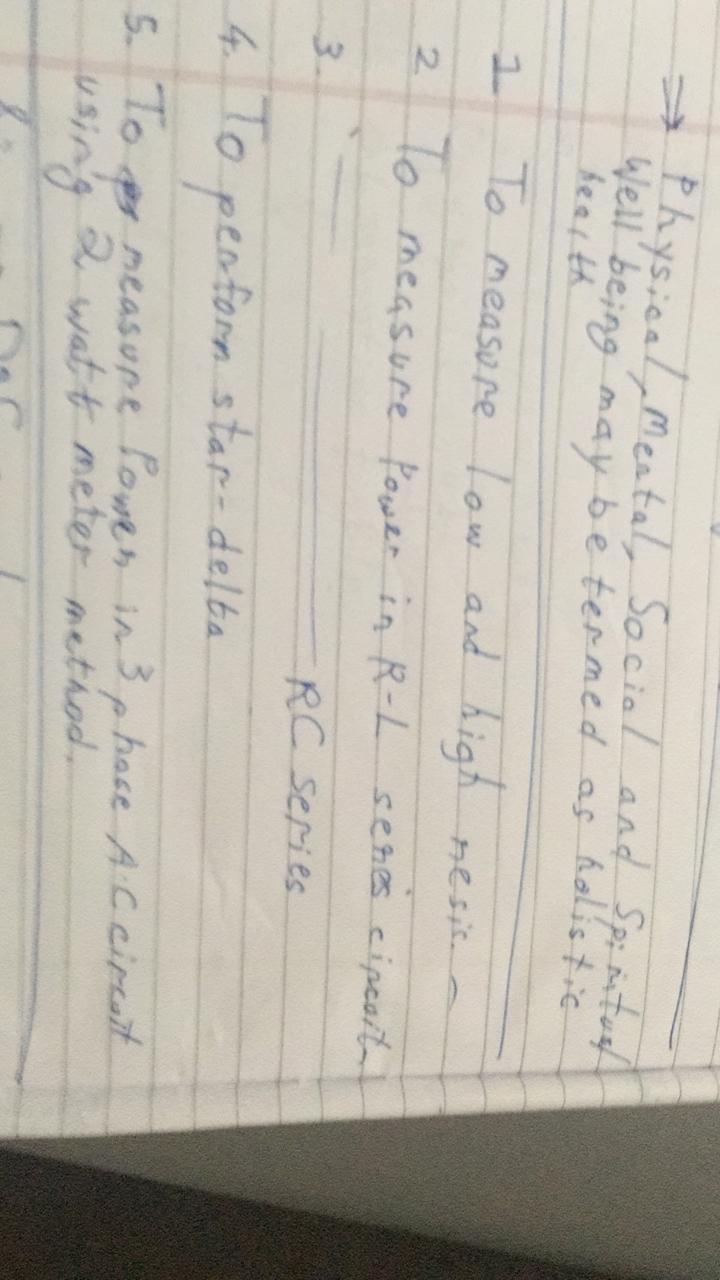 → Physical, mental, Social and Spiritual
well being may be termed as holistic
health
1 To measure low and high resis -
2 To measure Power in R-L series circuit
3. RC series
4. To perform star-delta
5. To measure Power in 3 phase A.C circuit
using 2 watt meter method.